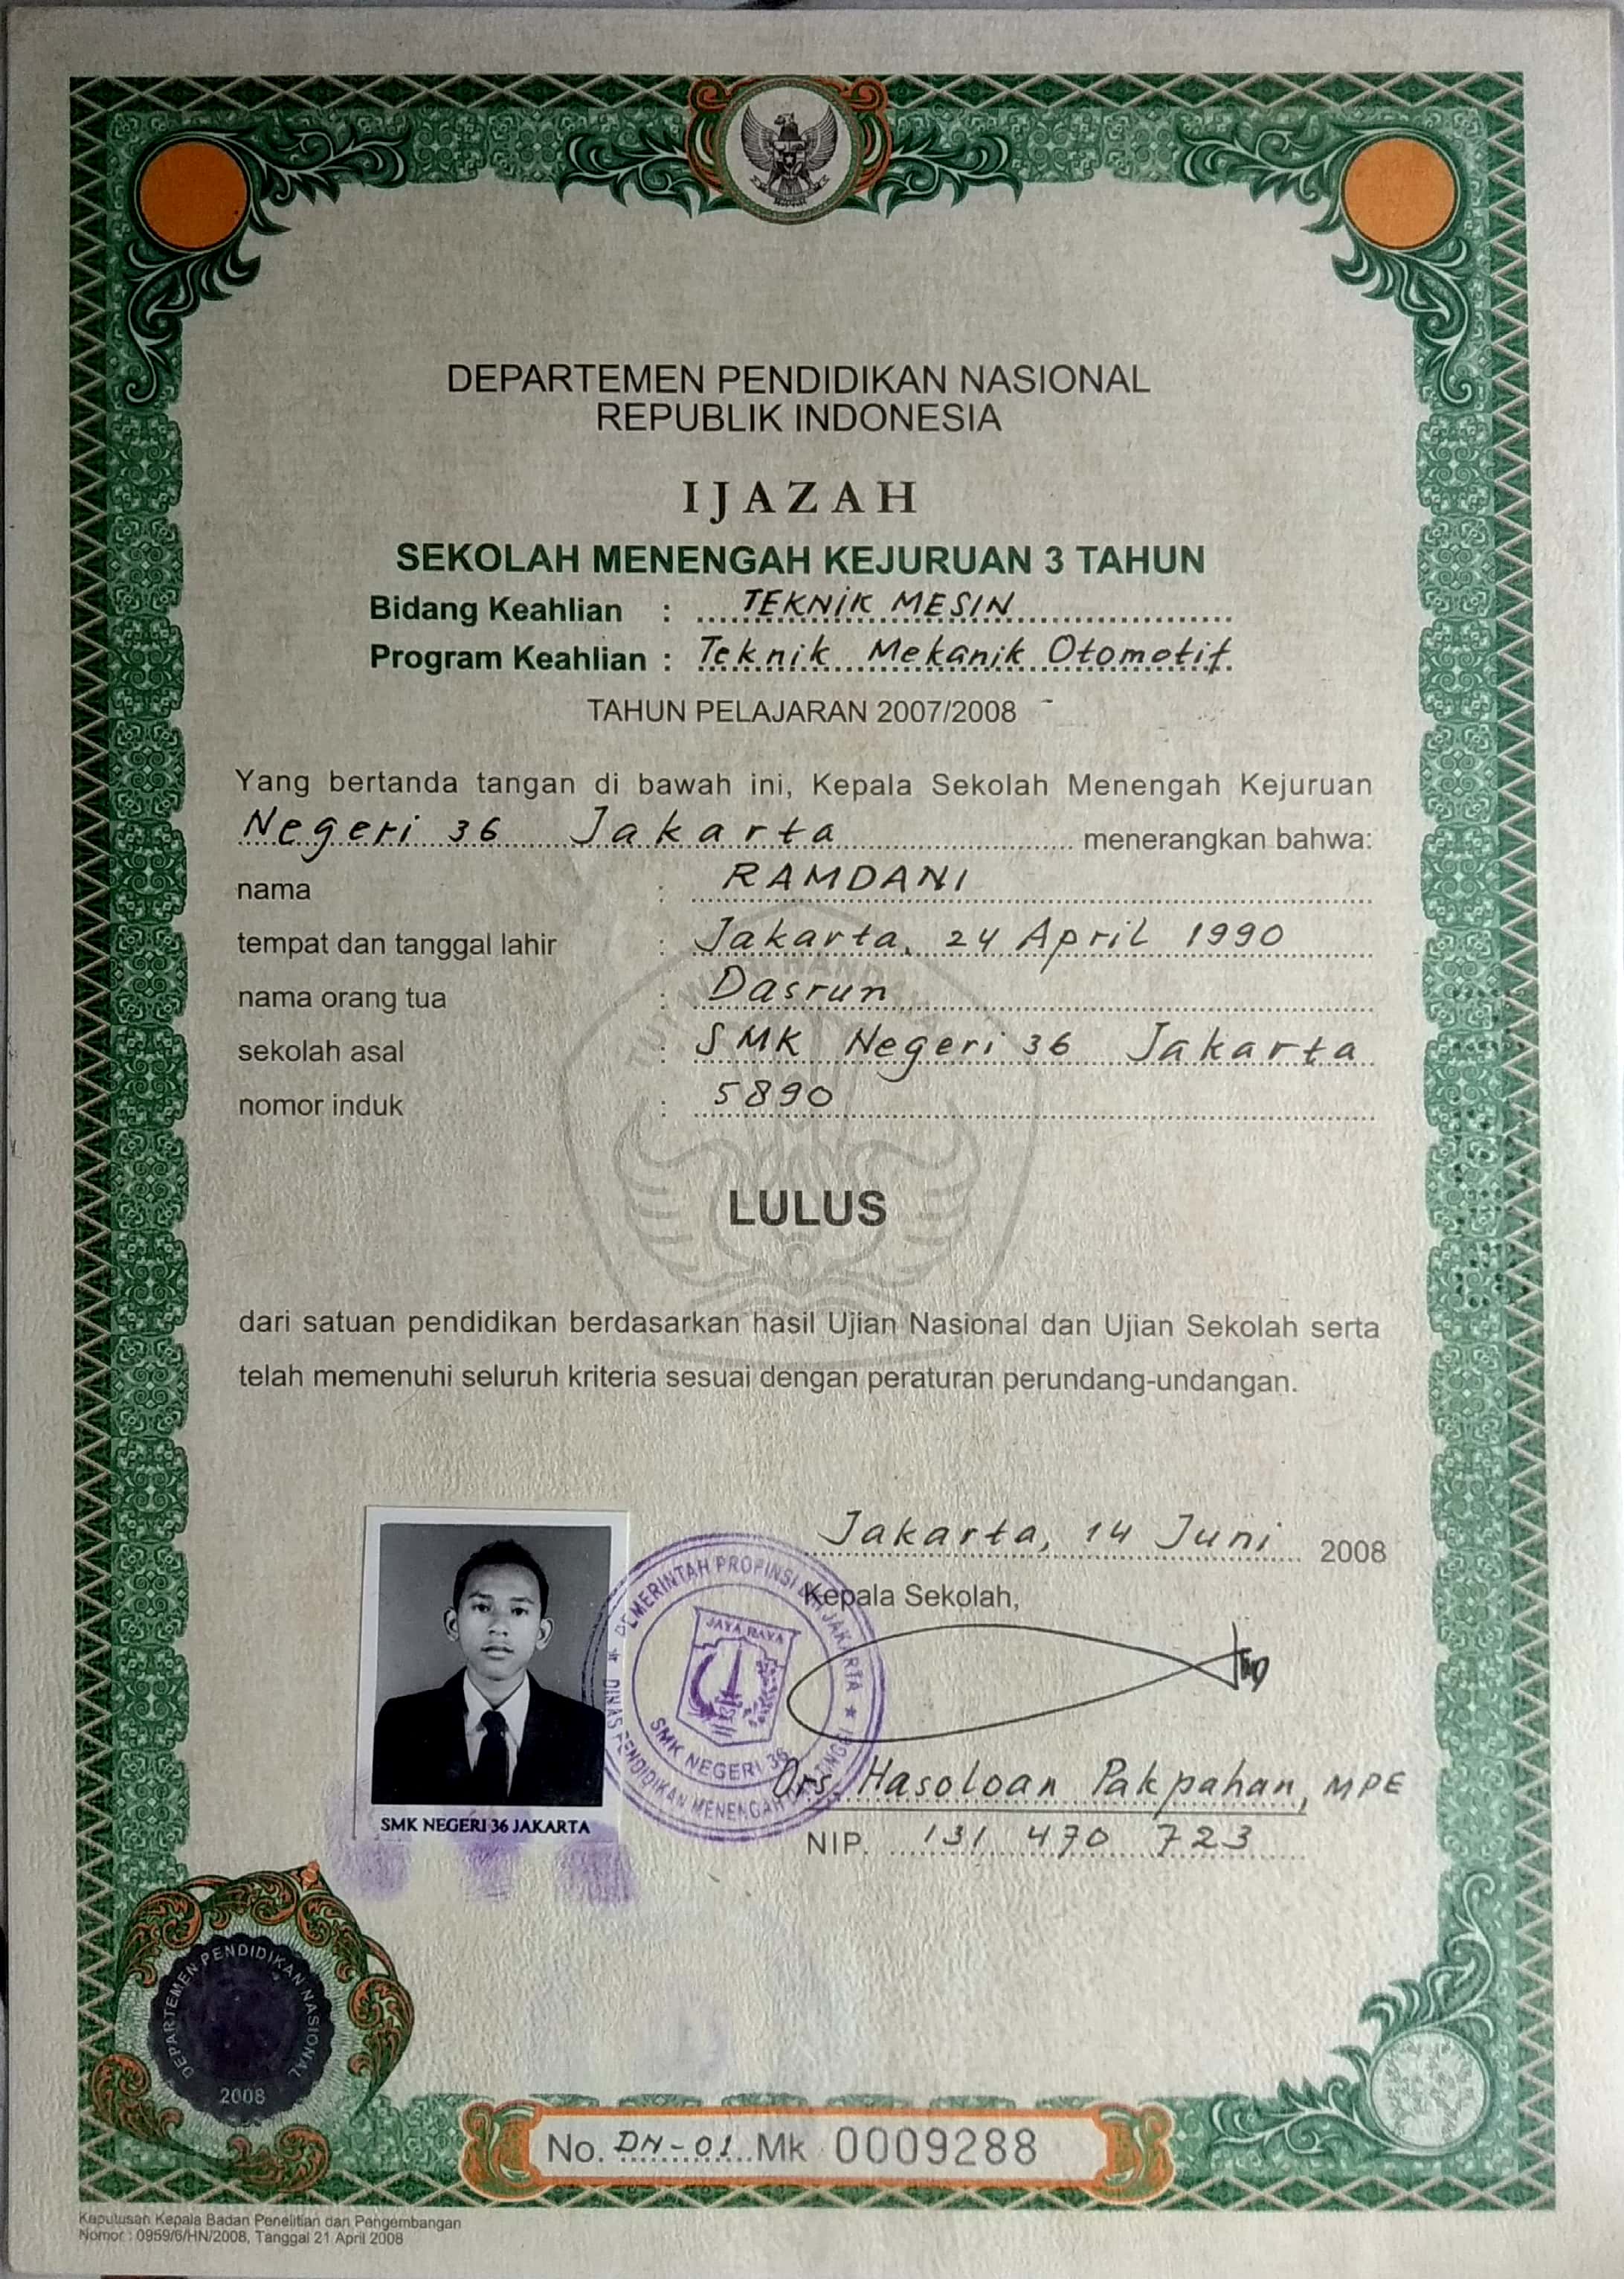 DEPARTEMEN PENDIDIKAN NASIONAL
REPUBLIK INDONESIA
IJAZAH
SEKOLAH MENENGAH KEJURUAN 3 TAHUN
Bidang Keahlian : TEKNIK MESIN
Program Keahlian : Teknik Mekanik Otomotif
TAHUN PELAJARAN 2007/2008
Yang bertanda tangan di bawah ini, Kepala Sekolah Menengah Kejuruan
Negeri 36 Jakarta menerangkan bahwa:
nama : RAMDANI
tempat dan tanggal lahir : Jakarta, 24 April 1990
nama orang tua : Dasrun
sekolah asal : SMK Negeri 36 Jakarta
nomor induk : 5890
TUT WURI HANDAYANI
LULUS
dari satuan pendidikan berdasarkan hasil Ujian Nasional dan Ujian Sekolah serta
telah memenuhi seluruh kriteria sesuai dengan peraturan perundang-undangan.
Jakarta, 14 Juni 2008
Kepala Sekolah,
PEMERINTAH PROPINSI DKI JAKARTA
JAYA RAYA
SMK NEGERI 36
DINAS PENDIDIKAN MENENGAH TINGGI
Drs. Hasoloan Pakpahan, MPE
NIP. 131 470 723
SMK NEGERI 36 JAKARTA
DEPARTEMEN PENDIDIKAN NASIONAL
2008
No. DN-01 Mk 0009288
Keputusan Kepala Badan Penelitian dan Pengembangan
Nomor : 0959/6/HN/2008, Tanggal 21 April 2008